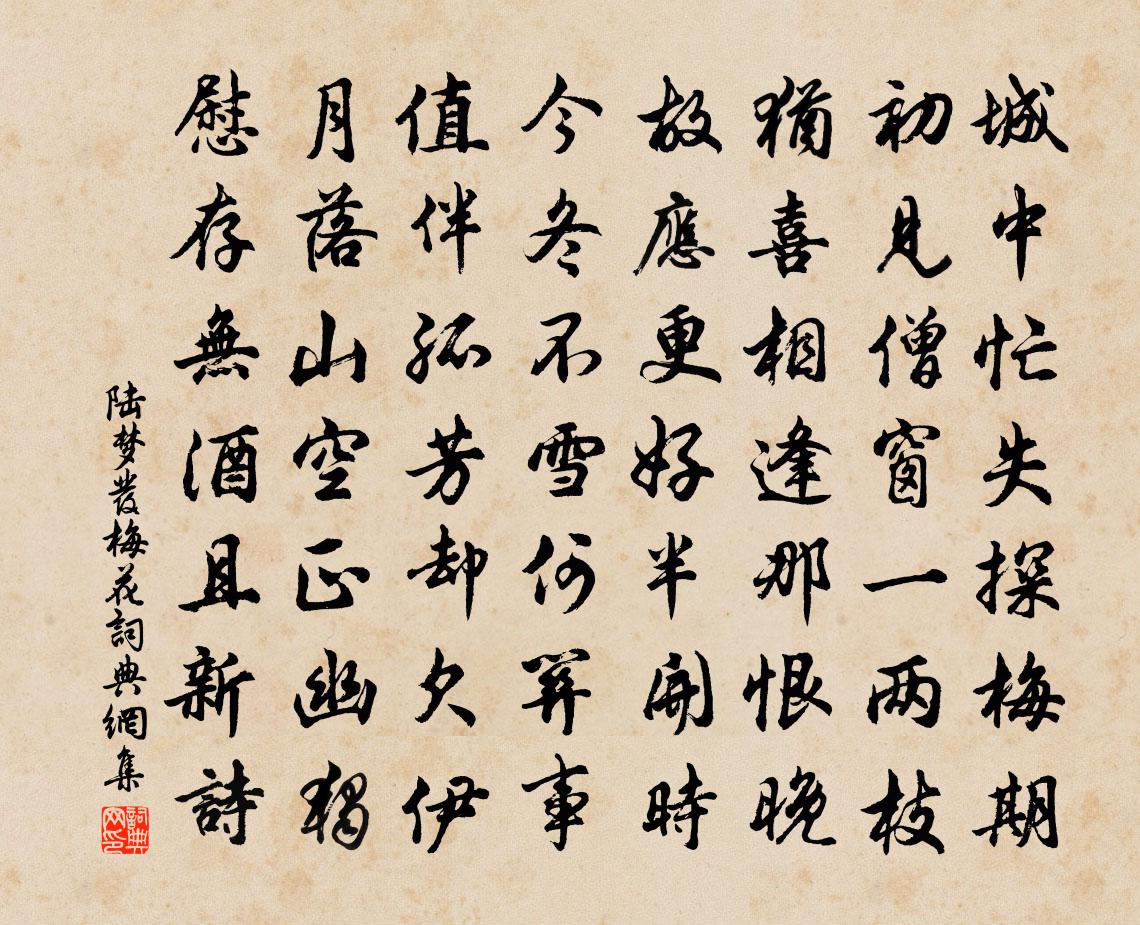 城中忙失探梅期
初見僧窗一两枝
猶喜相逢那恨晚
故應更好半開時
今冬不雪何關事
值伴孤芳却欠伊
月落山空正幽獨
慰存無酒且新詩
陆梦发梅花詞典網集
詞典网印